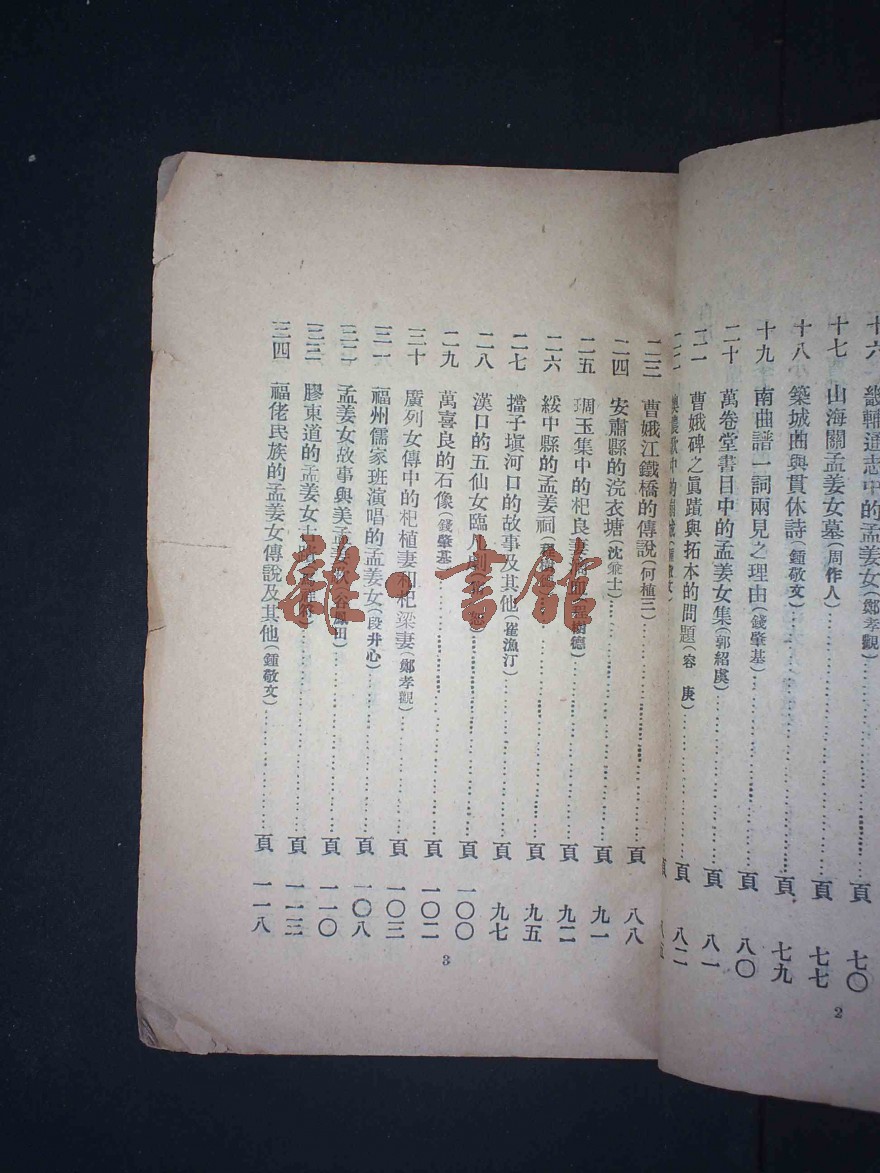 十六 畿輔通志中的孟姜女(鄭孝觀)……頁 七〇
十七 山海關孟姜女墓(周作人)……頁 七七
十八 築城曲與貫休詩(鍾敬文)……頁 七九
十九 南曲譜一詞兩見之理由(錢肇基)……頁 八〇
二十 萬卷堂書目中的孟姜女集(郭紹虞)……頁 八一
二一 曹娥碑之眞蹟與拓本的問題(容庚)……頁 八二
2
二三 曹娥江鐵橋的傳說(何植三)……頁 八八
二四 安肅縣的浣衣塘(沈兼士)……頁 九一
二五 琱玉集中的杞良妻……德)……頁 九二
二六 綏中縣的孟姜祠……頁 九五
二七 擋子塡河口的故事及其他(崔漁汀)……頁 九七
二八 漢口的五仙女臨凡劇……頁 一〇〇
二九 萬喜良的石像(錢肇基)……頁 一〇二
三十 廣列女傳中的杞植妻和杞梁妻(鄭孝觀)……頁 一〇三
三一 福州儒家班演唱的孟姜女(段井心)……頁 一〇八
三二 孟姜女故事與美孟姜……(谷鳳田)……頁 一一〇
三三 膠東道的孟姜女古蹟……頁 一一三
三四 福佬民族的孟姜女傳說及其他(鍾敬文)……頁 一一八
3
雜·書館